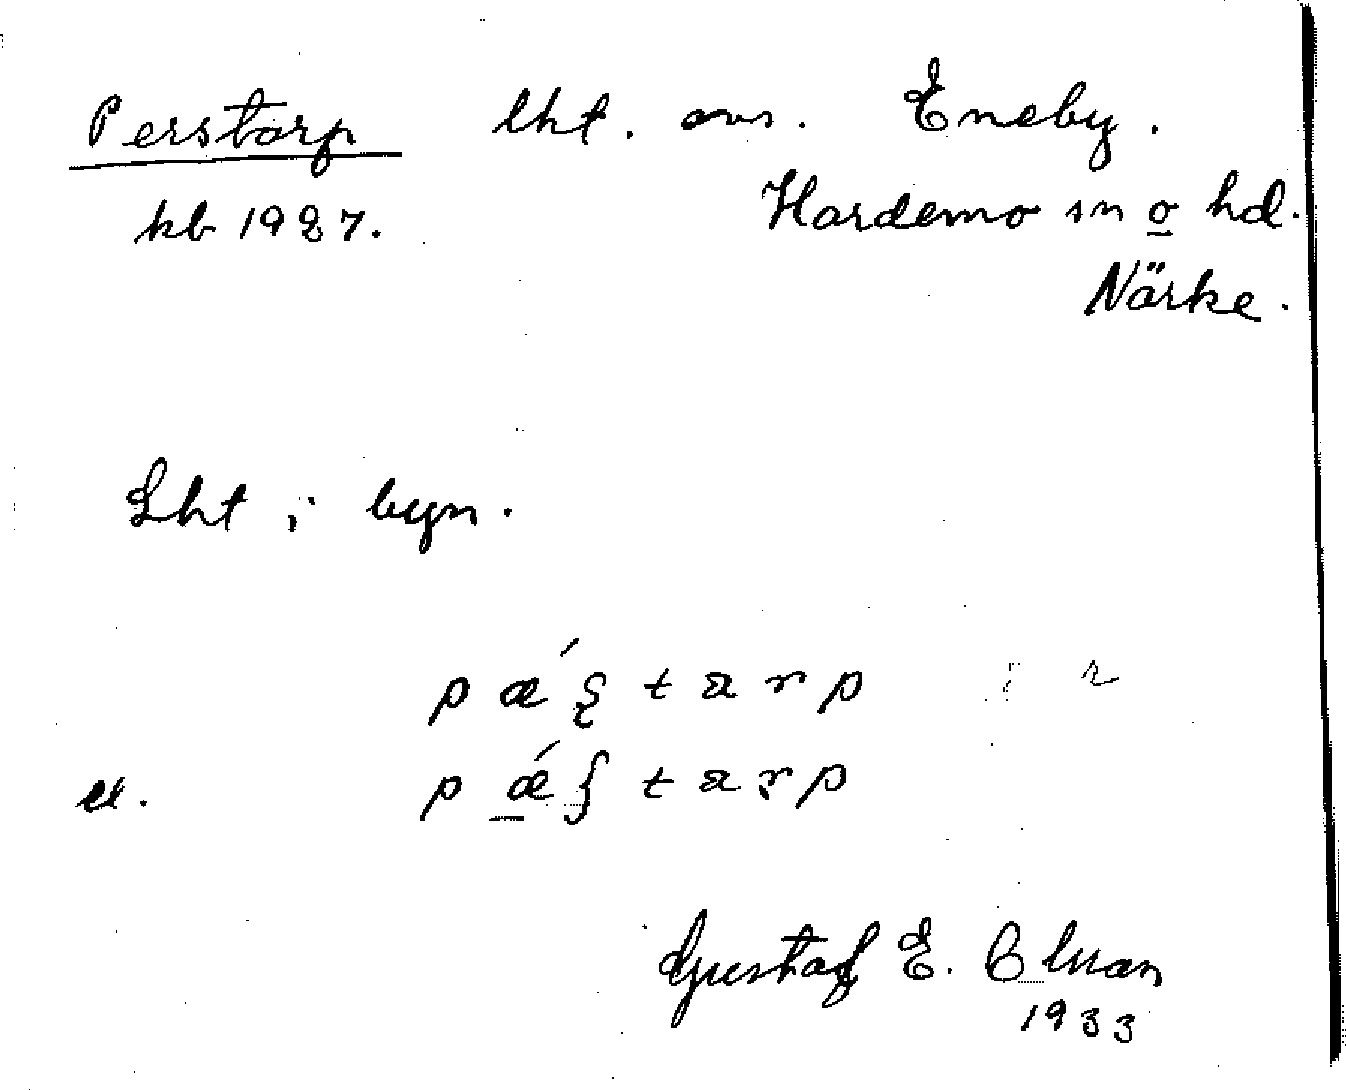 Perstorp lht. avs. Eneby.
kb 1927. Hardemo sn o hd.
Närke.
Lht i byn.
pǽʂtarp
el. pǽʃtarp
Gustaf E.
1933